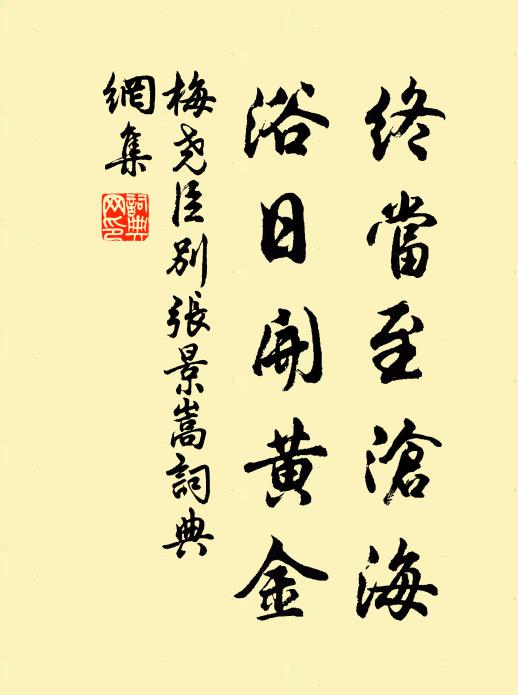 終當至滄海
浴日開黄金
梅尧臣别張景嵩詞典
網集
詞典
网印